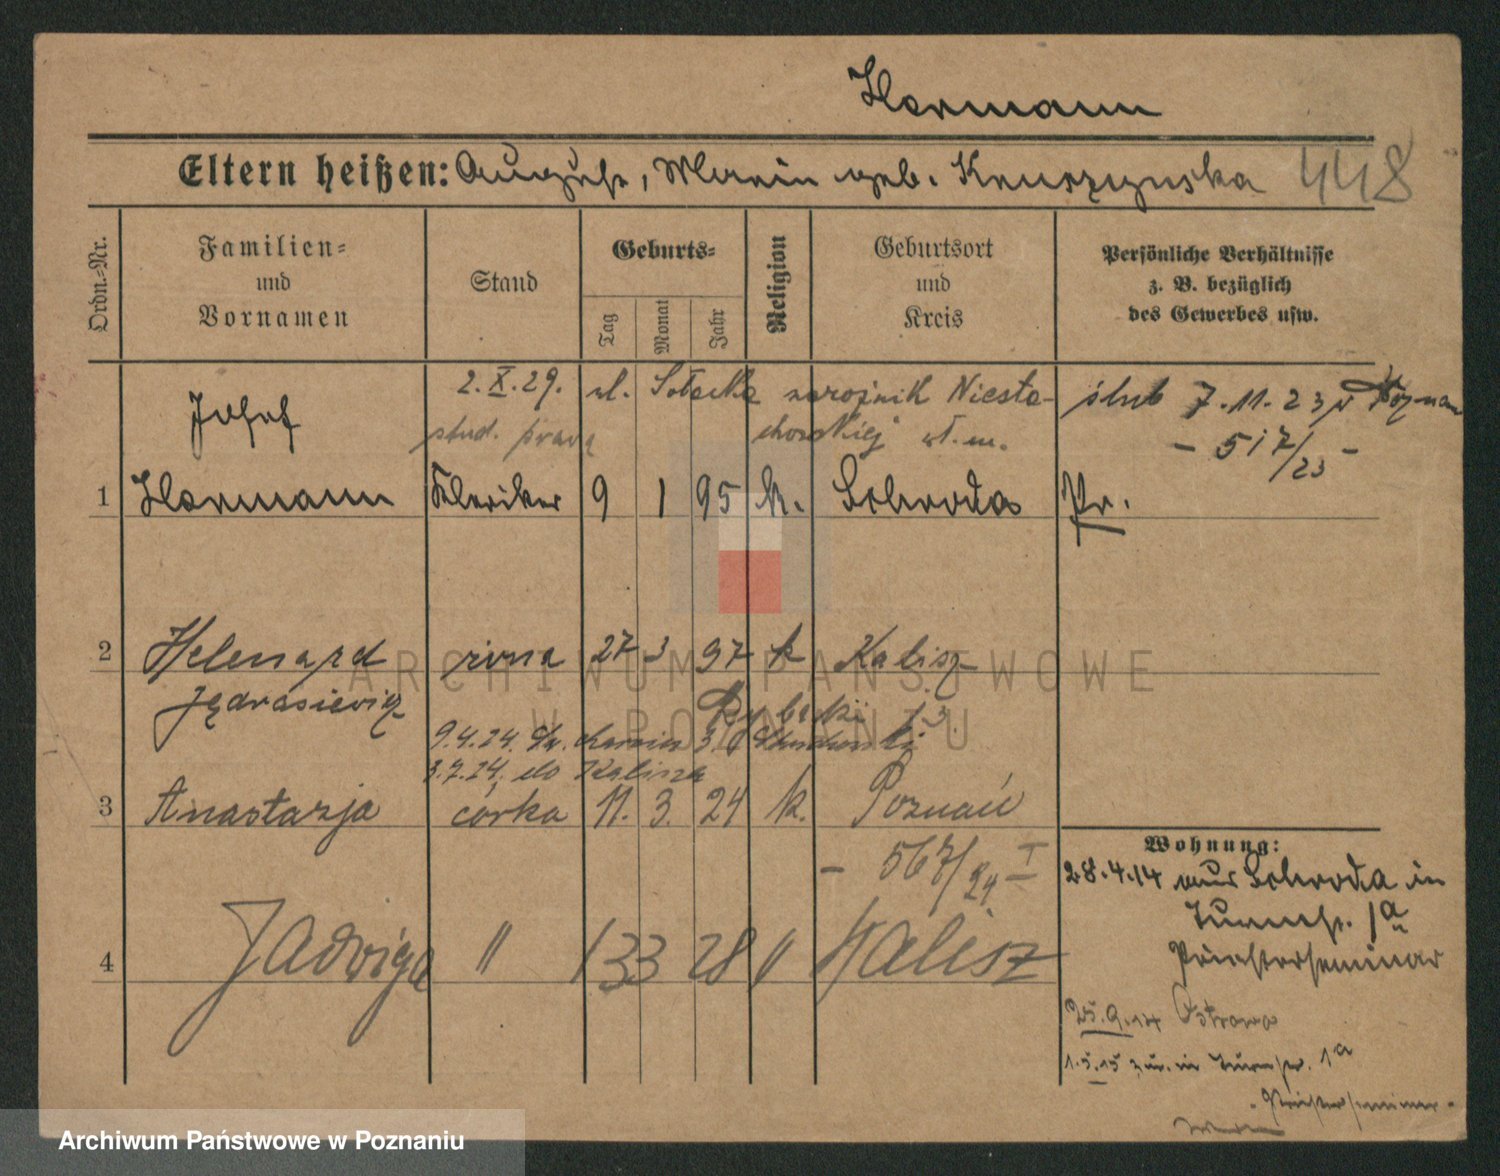 Hermann
Eltern heißen: August, Maria geb. Kruszynska 448
Ordn.-Nr.
Familien- und Vornamen
Stand
Geburts-
Tag
Monat
Jahr
Religion
Geburtsort und Kreis
Persönliche Verhältnisse z. B. bezüglich des Gewerbes usw.
2.X.29. ul. Sołacka narożnik Niestachowskiej wł. m.
ślub 7.11.23 Poznań
- 517/23 -
Josef
stud. prawa
1 Hermann Kleriker 9 1 95 k. Schroda Pr.
2 Helena żona 27 3 97 k Kalisz
Jędrasiewicz
9.4.24. Św. Marcin
3.7.24. do Kalisza
3 Anastazja córka 11. 3. 24 k. Poznań
- 567/24 I -
4 Jadwiga " 1 33 28 " Kalisz
Wohnung:
28.4.14 aus Schroda in
Turmstr. 1a
Priesterseminar
25.9.14 Ostrowo
1.5.15 zur. in Turmstr. 1a
Priesterseminar
ARCHIWUM PAŃSTWOWE
W POZNANIU
Archiwum Państwowe w Poznaniu